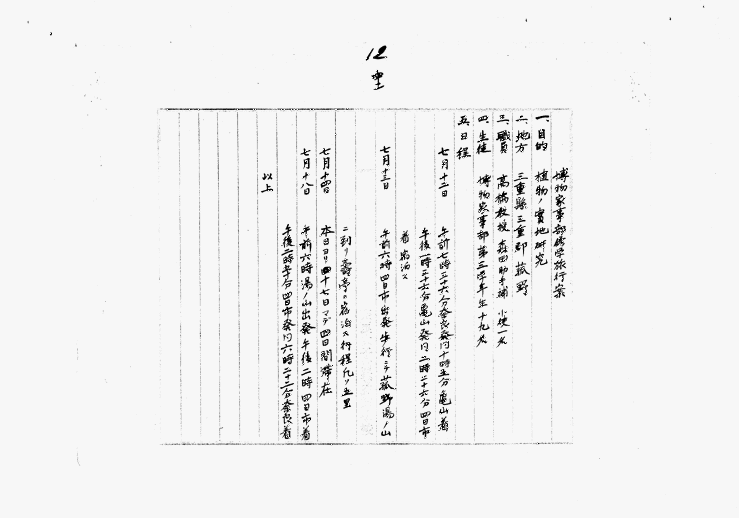 12
博物家事部修学旅行案
一、目的 植物ノ實地研究
二、地方 三重縣三重郡菰野
三、職員 髙橋教授 森田助手補 小使一名
四、生徒 博物家事部第三学年生十九名
五、日程
七月十二日 午前七時三十六分奈良発同十時五分亀山着
午後一時二十六分亀山発同二時二十六分四日市
着宿泊ス
七月十三日 午前六時四日市出発歩行ニテ菰野湯ノ山
ニ到リ壽亭ニ宿泊ス行程凡ソ五里
七月十四日 本日ヨリ十七日マデ四日間滞在
七月十八日 午前六時湯ノ山出発午後二時四日市着
午後二時半分四日市発同六時二十二分奈良着
以上